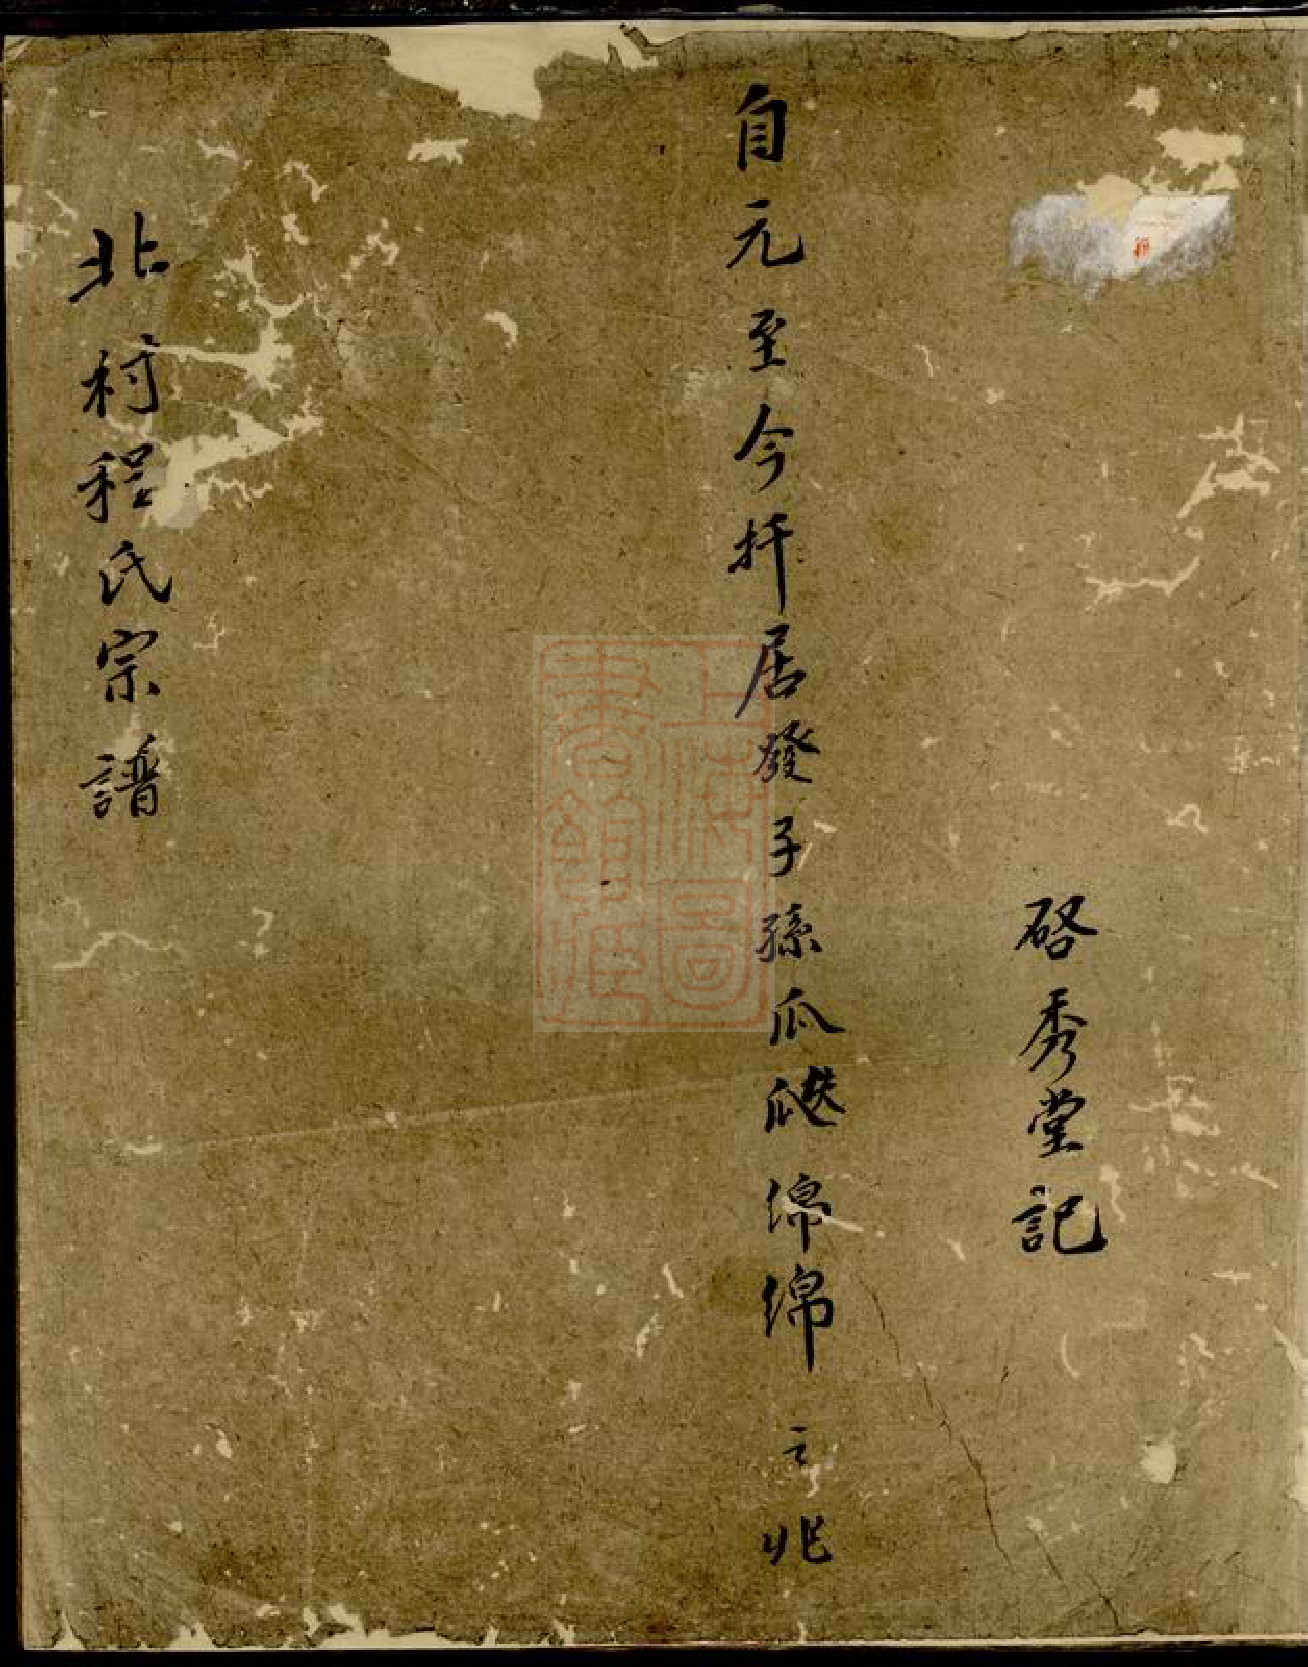 啓秀堂記
自元至今扦居發子孫瓜瓞綿綿之兆
北村程氏宗譜
上海圖書館藏